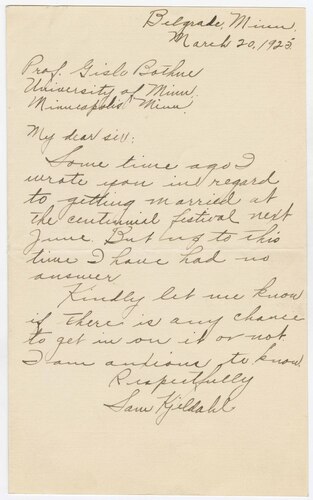 Belgrade, Minn.
March 20, 1925
Prof. Gisle Bothne
University of Minn.
Minneapolis, Minn.
My dear sir:
Some time ago I
wrote you in regard
to getting married at
the centennial festival next
June. But up to this
time I have had no
answer
Kindly let me know
if there is any chance
to get in on it or not
I am anxious to know
Respectfully
Sam Kjeldahl